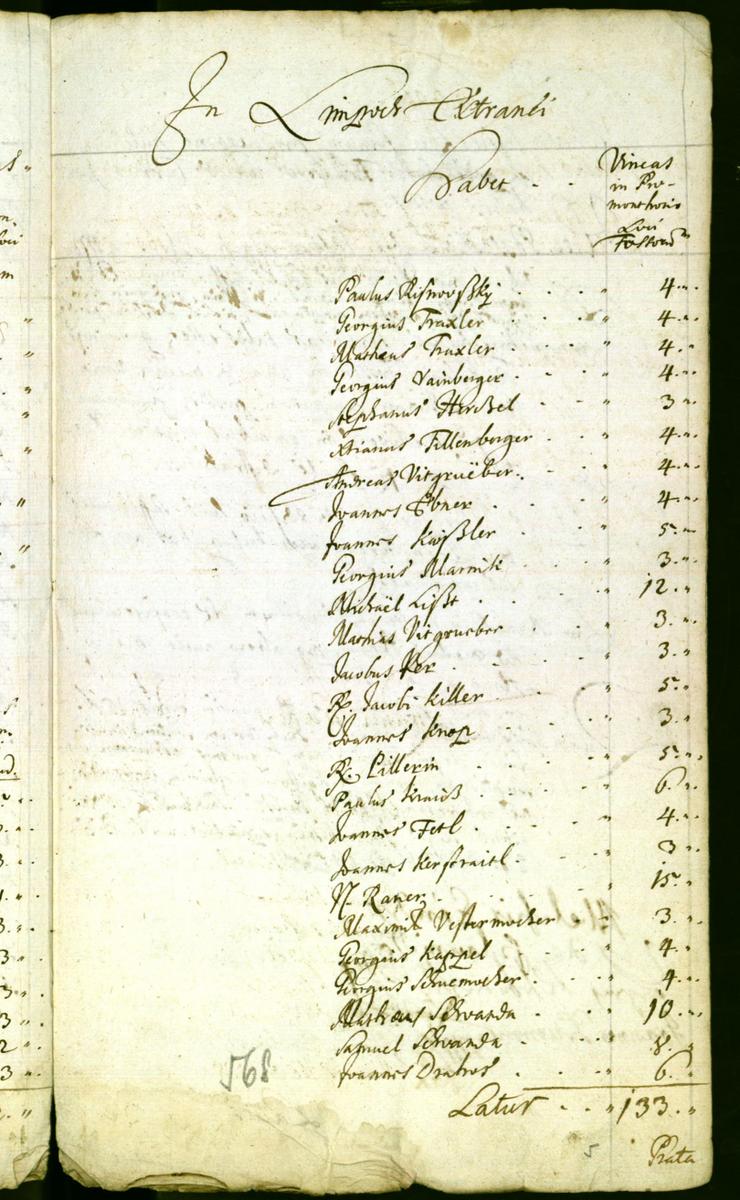 In Limpoch Extranei
Habet - -
Vineas
in Pro-
monthorio
Loci
Paulus Risnovßkÿ - - - " 4 - "
Georgius Traxler - - - " 4 - "
Matheus Traxler - - - " 4 - "
Georgius Vainberger - - - " 4 - "
Stephanus Herchel - - " 3 "
Xtianus Tillenberger - - " 4 - "
Andreas Vitgrueber - - " 4 - "
Joannes Ebner - - - " 4 - "
Joannes Kaißler - - - " 5 - "
Georgius Marnik - - - " 3 - "
Michaël Lißt - - - " 12 - "
Mathias Vitgrueber - - " 3 - "
Jacobus - - - " 3 - "
R. Jacobi Killer - - - " 5 - "
Joannes Knop - - - " 3 - "
R. Pillerin - - - " 5 - "
Paulus Krauß - - - " 6 - "
Joannes Fetl - - - " 4 - "
Joannes Kerstraitl - - - " 3 "
N. Raner - - - " 15 - "
Maximil. Vestermocher - - " 3 - "
Georgius Kappel - - - " 4 - "
Georgius Schuemocher - - " 4 - "
Matheus Schwanda - - " 10 - "
Samuel Schwanda - - - " 8 - "
Joannes - - - " 6 - "
Latus - - " 133 - "
568
5
Prata